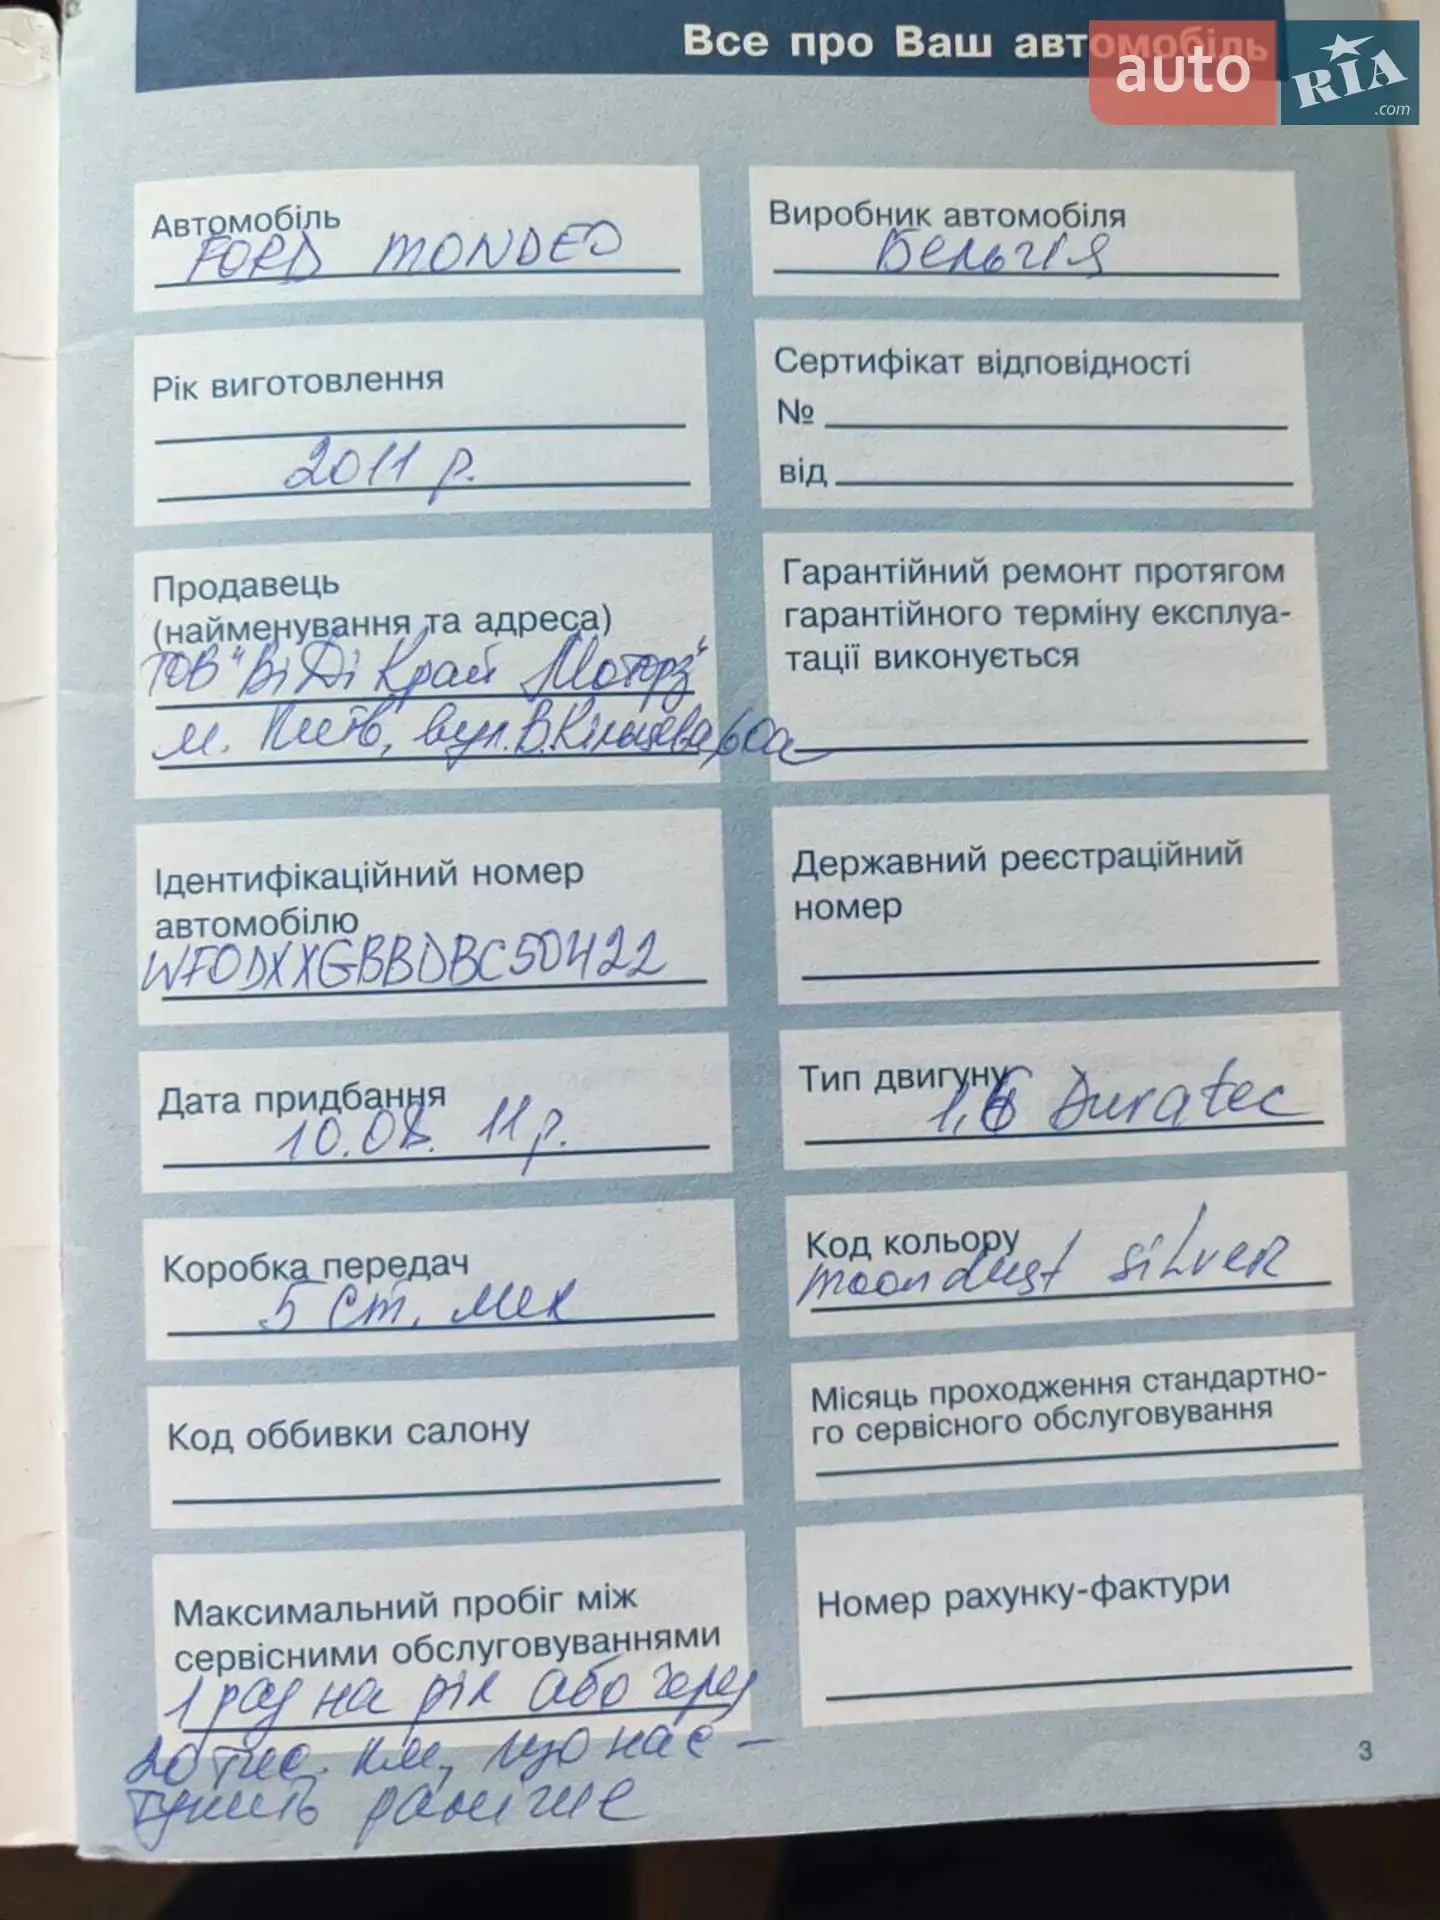 Все про Ваш автомобіль
auto RIA .com
Автомобіль
FORD MONDEO
Виробник автомобіля
Бельгія
Рік виготовлення
2011 р.
Сертифікат відповідності
№
від
Продавець
(найменування та адреса)
ТОВ "ВіДі Край Моторз"
м. Київ, вул. В. Кільцева, 60а
Гарантійний ремонт протягом
гарантійного терміну експлуа-
тації виконується
Ідентифікаційний номер
автомобілю
WF0DXXGBBDBC50422
Державний реєстраційний
номер
Дата придбання
10.08. 11р.
Тип двигуну
1,6 Duratec
Коробка передач
5 ст. мех
Код кольору
moondust silver
Код оббивки салону
Місяць проходження стандартно-
го сервісного обслуговування
Максимальний пробіг між
сервісними обслуговуваннями
1 раз на рік або через
20 тис. км, що нас-
тупить раніше
Номер рахунку-фактури
3